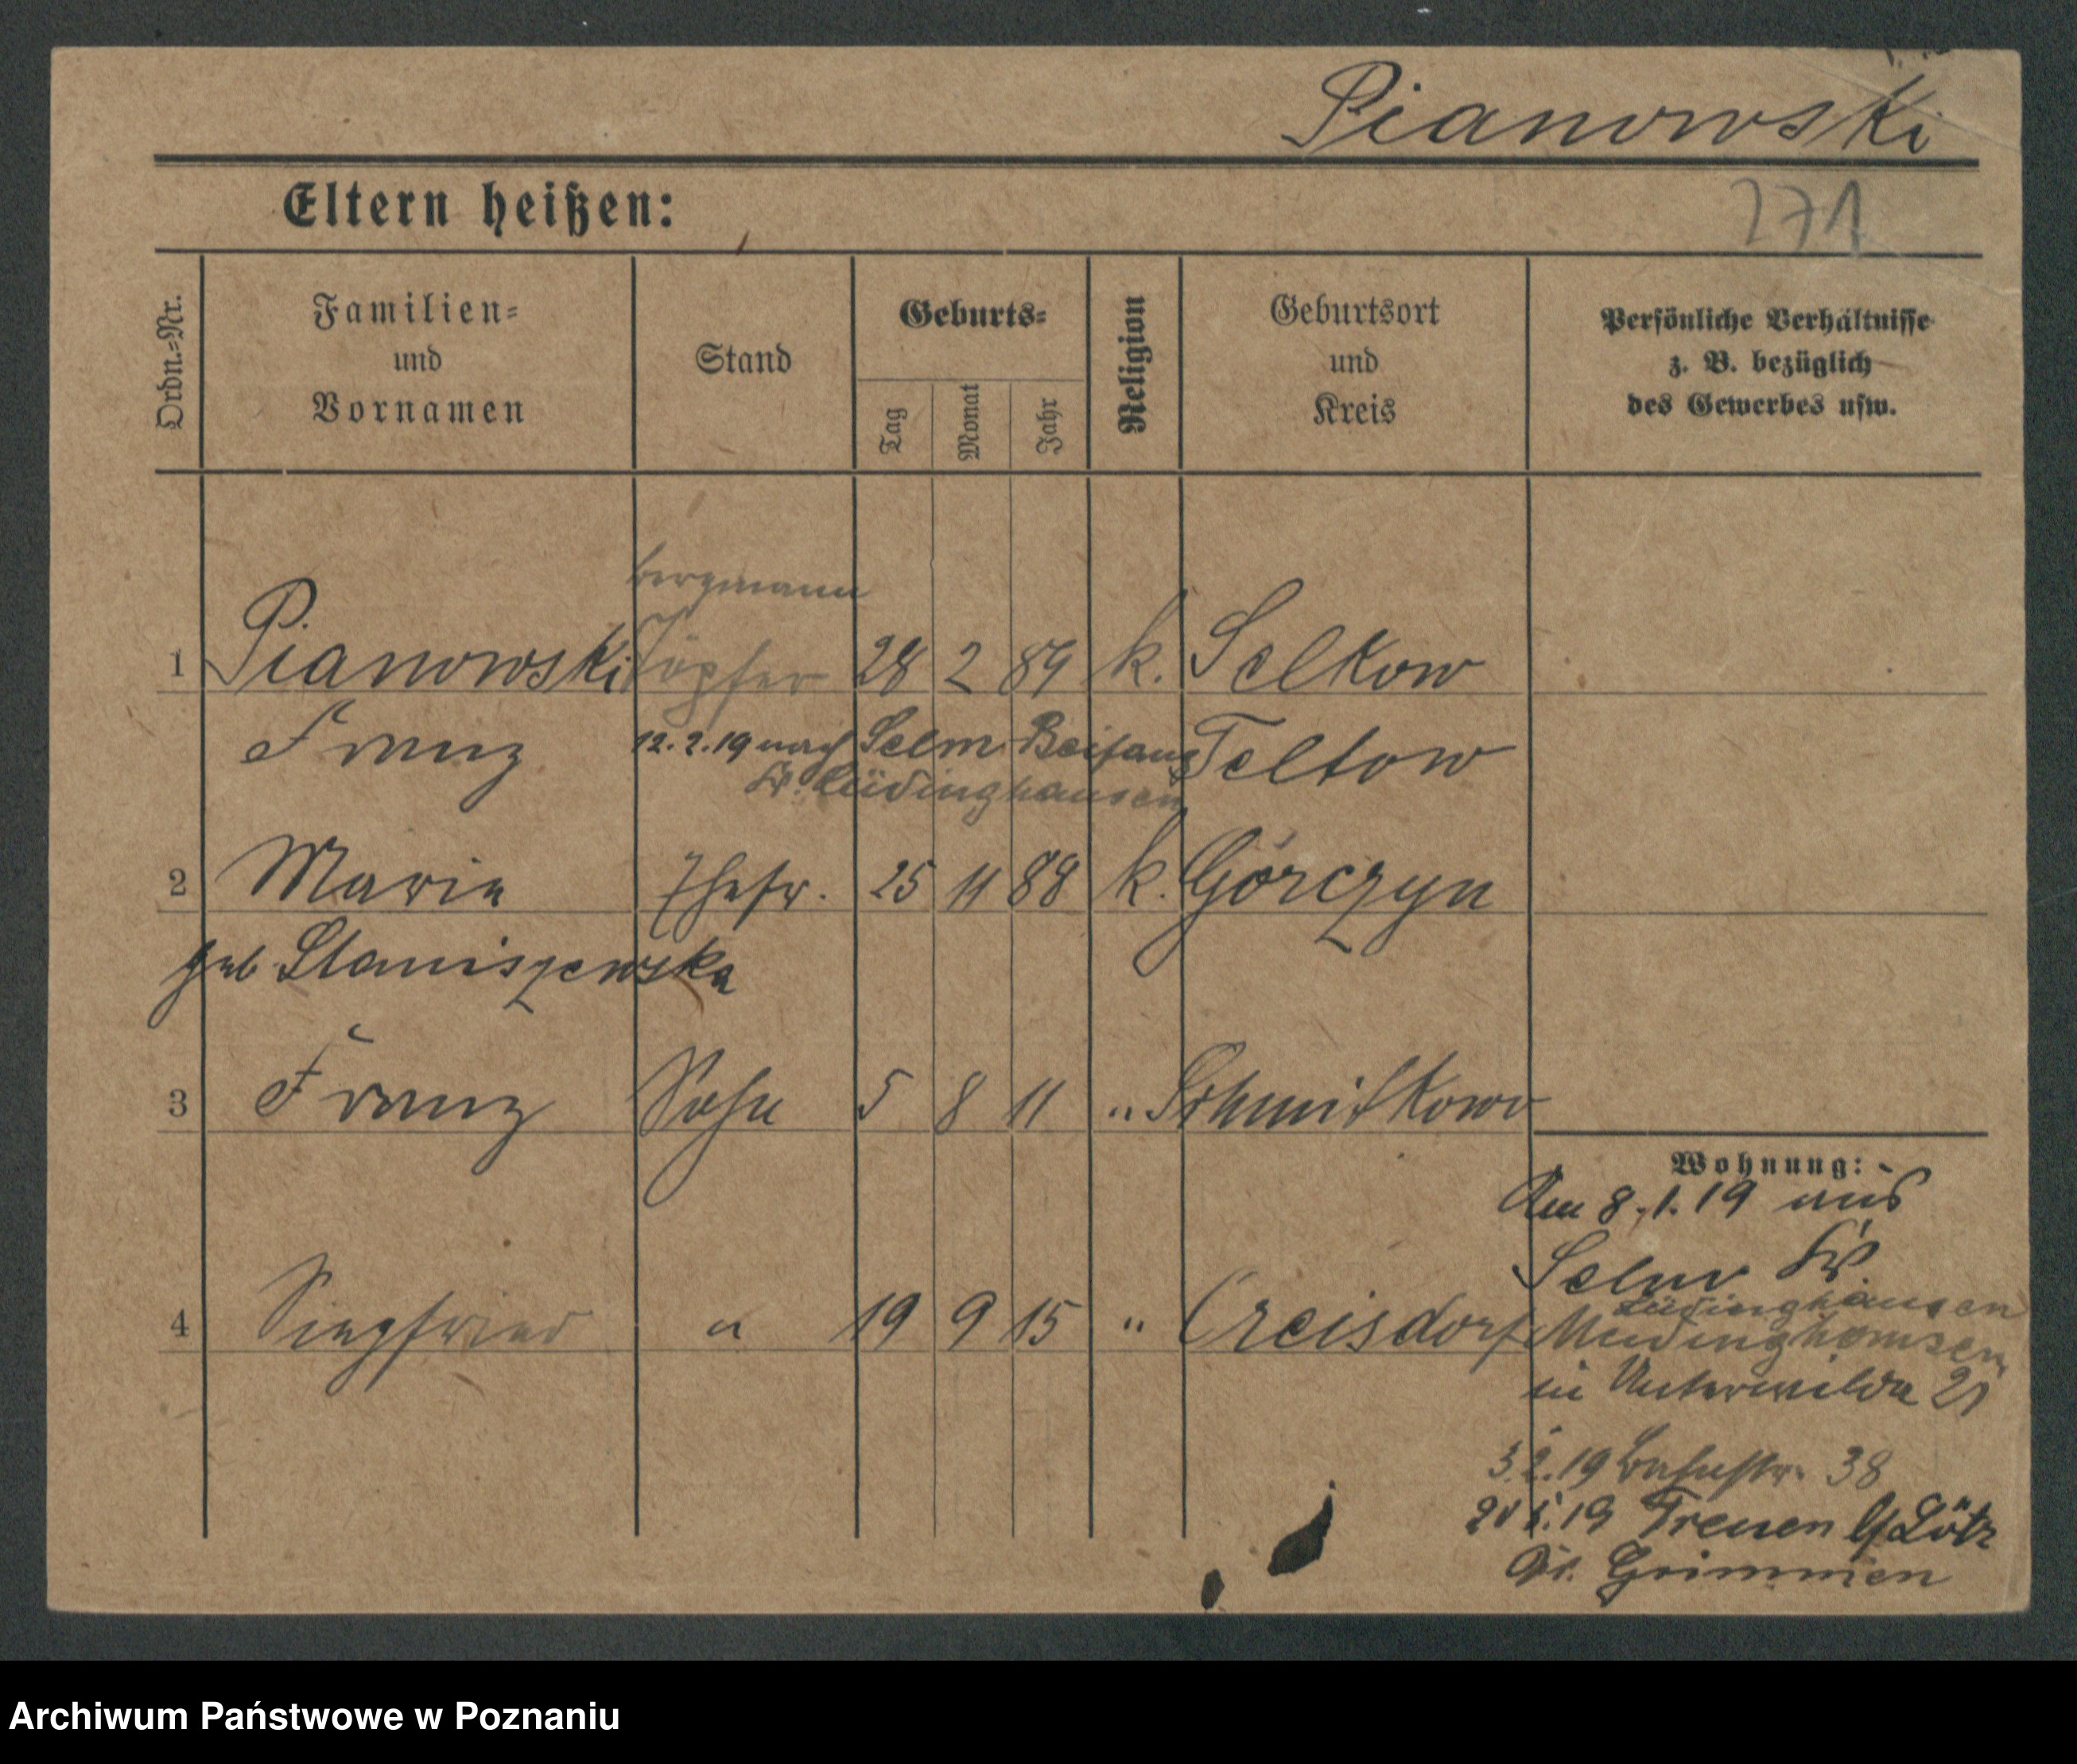 Pianowski
Eltern heißen:
271
Ordn.=Nr.
Familien=
und
Vornamen
Stand
Geburts=
Tag
Monat
Jahr
Religion
Geburtsort
und
Kreis
Persönliche Verhältnisse
z. B. bezüglich
des Gewerbes usw.
bergmann
1 Pianowski Töpfer 28 2 89 k. Selkow
Franz 12.2.19 nach Selm-Beifang Teltow
Kr. Lüdinghausen
2 Marie Ehefr. 25 11 88 k. Górczyn
geb Staniszewska
3 Franz Sohn 5 8 11 " Schmilkowo
Wohnung:
Am 8.1.19 aus
Selm Kr.
Lüdinghausen
4 Siegfried " 19 9 15 " Creisdorf
in Unterwilda 21
3.2.19 Bahnstr. 38
5.19 Treuen b/Lötz
Kr. Grimmen
Archiwum Państwowe w Poznaniu